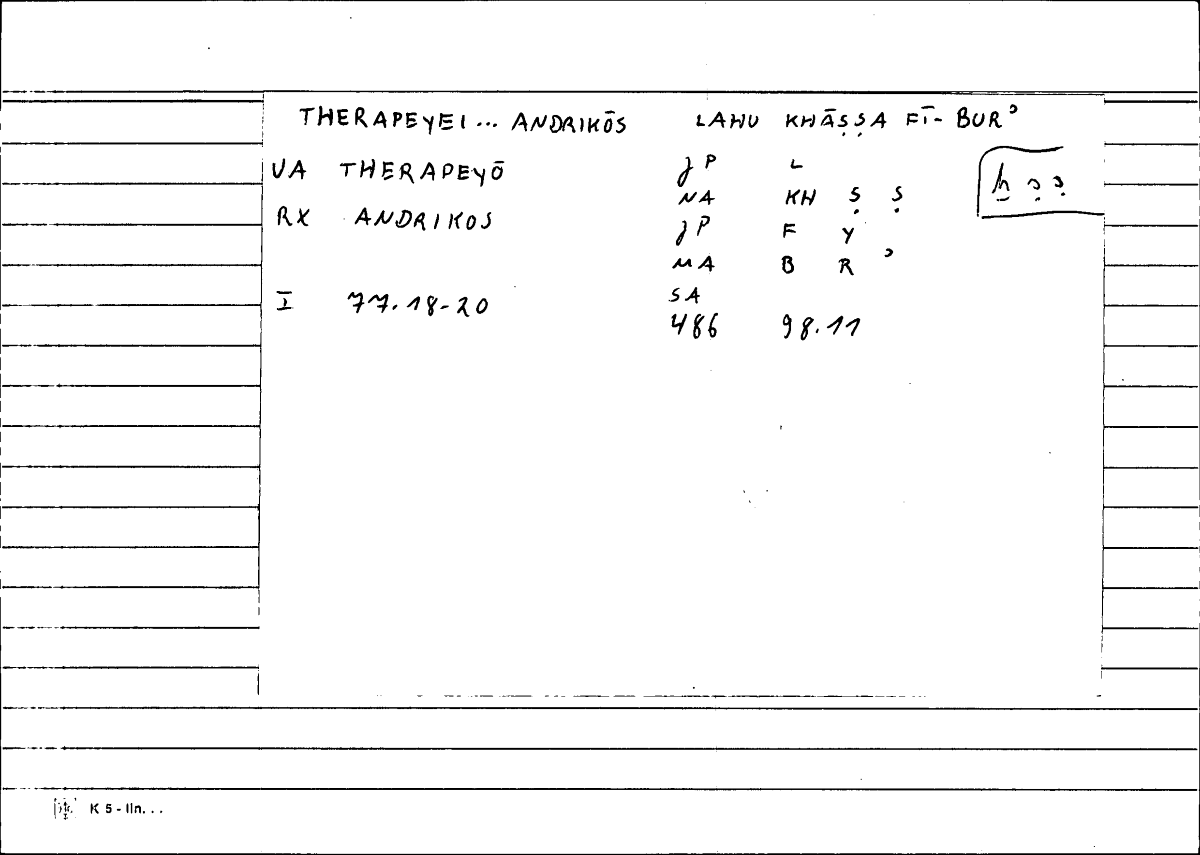 THERAPEYEI... ANDRIKŌS LAHU KHĀṢṢA FĪ-BURʾ
VA THERAPEYŌ JP L
NA KH Ṣ Ṣ
ḫ ṣ ṣ
RX ANDRIKOS JP F Y
MA B R ʾ
I 77.18-20 SA
486 98.11
K 5 - lln. . .